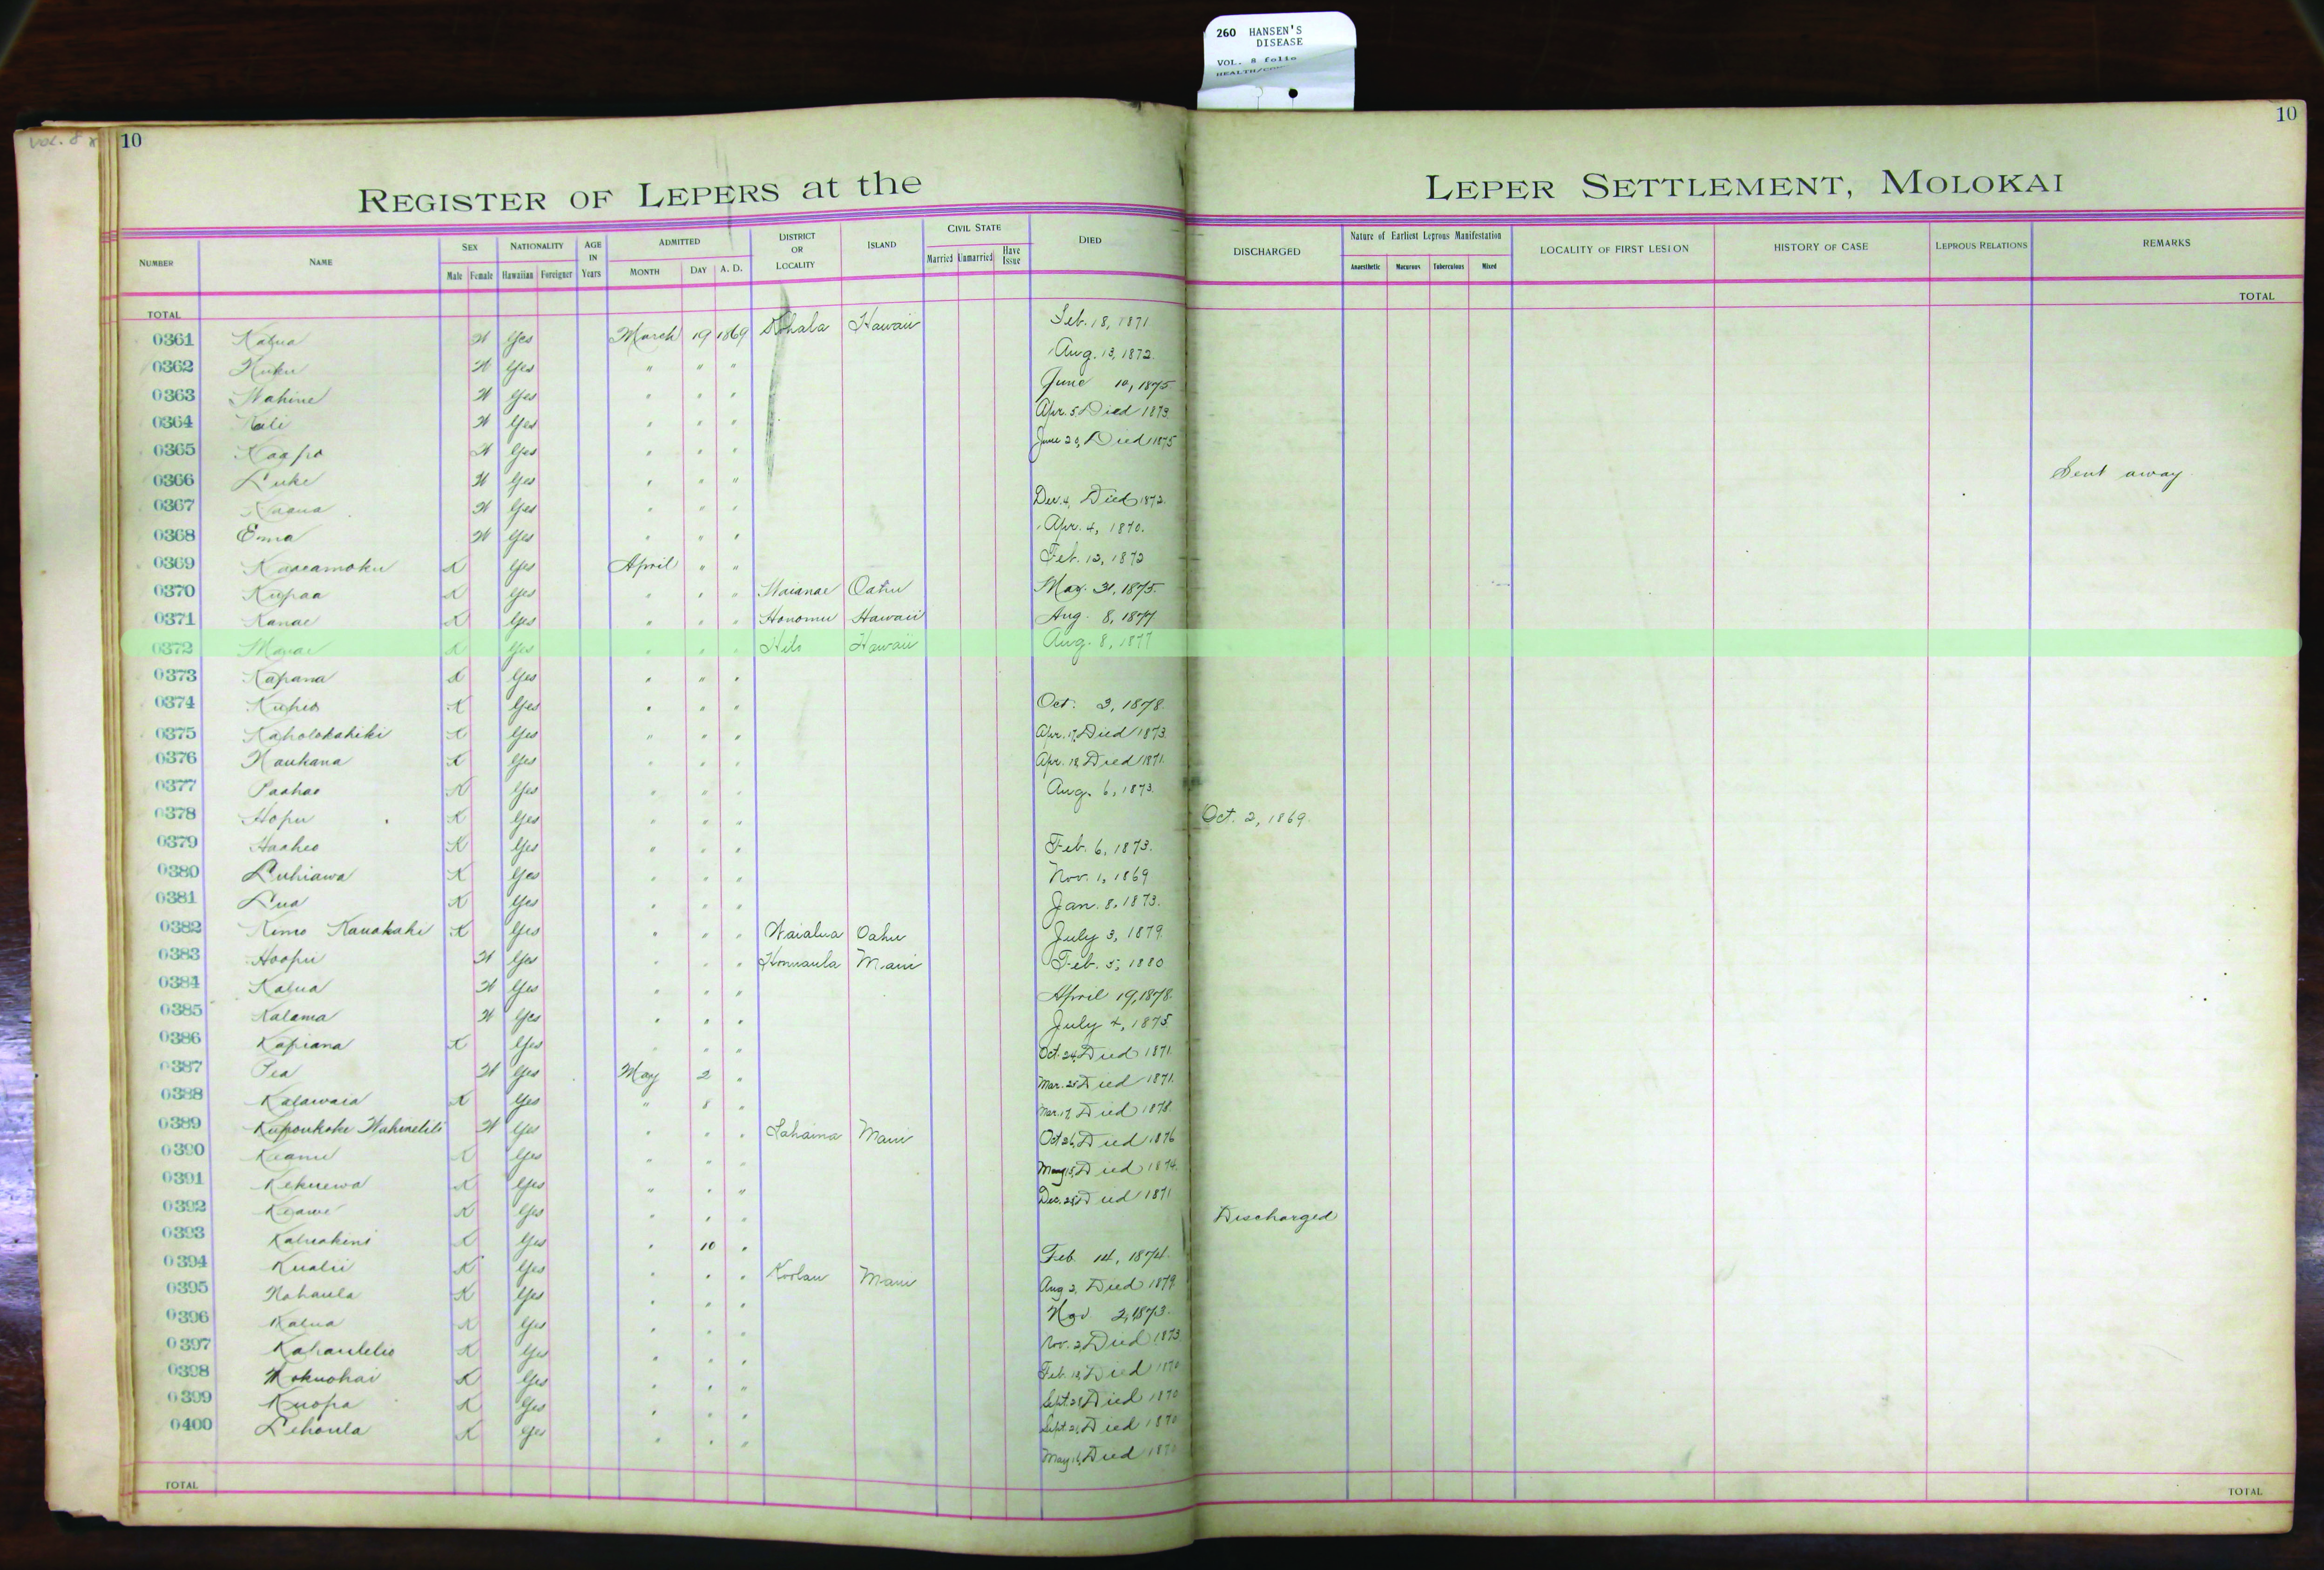 260 HANSEN'S
DISEASE
VOL. 8 folio
VOL. 8
10
10
REGISTER OF LEPERS at the LEPER SETTLEMENT, MOLOKAI
NUMBER NAME SEX Male Female NATIONALITY Hawaiian Foreigner AGE IN Years ADMITTED MONTH DAY A. D. DISTRICT OR LOCALITY ISLAND CIVIL STATE Married Unmarried Have Issue DIED DISCHARGED Nature of Earliest Leprous Manifestation Anaesthetic Macurous Tuberculous Mixed LOCALITY OF FIRST LESION HISTORY OF CASE LEPROUS RELATIONS REMARKS
TOTAL TOTAL
0361 Kalua W Yes March 19 1869 Kohala Hawaii Feb. 18, 1871
0362 W Yes " " " Aug. 13, 1872.
0363 Wahine W Yes " " " June 10, 1875
0364 W Yes " " " Apr. 5 Died 1873.
0365 W Yes " " " June 29, Died 1875
0366 Luke W Yes " " " Sent away
0367 W Yes " " " Dec. 4, Died 1872.
0368 Emma W Yes " " " Apr. 4, 1870.
0369 K Yes April " " Feb. 12, 1872
0370 Kupaa K Yes " " " Waianae Oahu May. 31, 1875.
0371 Kanae K Yes " " " Honomu Hawaii Aug. 8, 1877
0372 K Yes " " " Hilo Hawaii Aug. 8, 1877
0373 Kapana K Yes " " "
0374 Kuheo K Yes " " " Oct. 3, 1878.
0375 Kaholokahiki K Yes " " " Apr. 17, Died 1873.
0376 Naukana K Yes " " " Apr. 18 Died 1871.
0377 Paahao K Yes " " " Aug. 6, 1873.
0378 Hopu K Yes " " " Oct. 2, 1869.
0379 Haaheo K Yes " " " Feb. 6, 1873.
0380 Luhiawa K Yes " " " Nov. 1, 1869
0381 Lua K Yes " " " Jan. 8, 1873.
0382 Kimo Kauakahi K Yes " " " Waialua Oahu July 3, 1879.
0383 Hoopii W Yes " " " Honuaula Maui Feb. 5, 1880
0384 Kalua W Yes " " " April 19, 1878.
0385 Kalama W Yes " " " July 4, 1875.
0386 Kapiana K Yes " " " Oct. 24, Died 1871.
0387 Pea W Yes May 2 " Mar. 25 Died 1871.
0388 Kalawaia K Yes " 8 " Mar. 17, Died 1878.
0389 W Yes " " " Lahaina Maui Oct 26, Died 1876
0390 Keanu K Yes " " " May 15, Died 1874.
0391 Kekuewa K Yes " " " Dec. 25 Died 1871
0392 Keawe K Yes " " " Discharged
0393 Kaluakini K Yes " 10 " Feb. 14, 1874.
0394 Kualii K Yes " " " Koolau Maui Aug 2, Died 1879.
0395 Nohaula K Yes " " " Nov 2, 1873.
0396 Kalua K Yes " " " Nov. 2, Died 1873
0397 K Yes " " " Feb. 18, Died 1870
0398 Mokuohai K Yes " " " Died 1870
0399 Kuopa K Yes " " " Died 1870
0400 Lehoula K Yes " " " May 16, Died 1870
TOTAL TOTAL